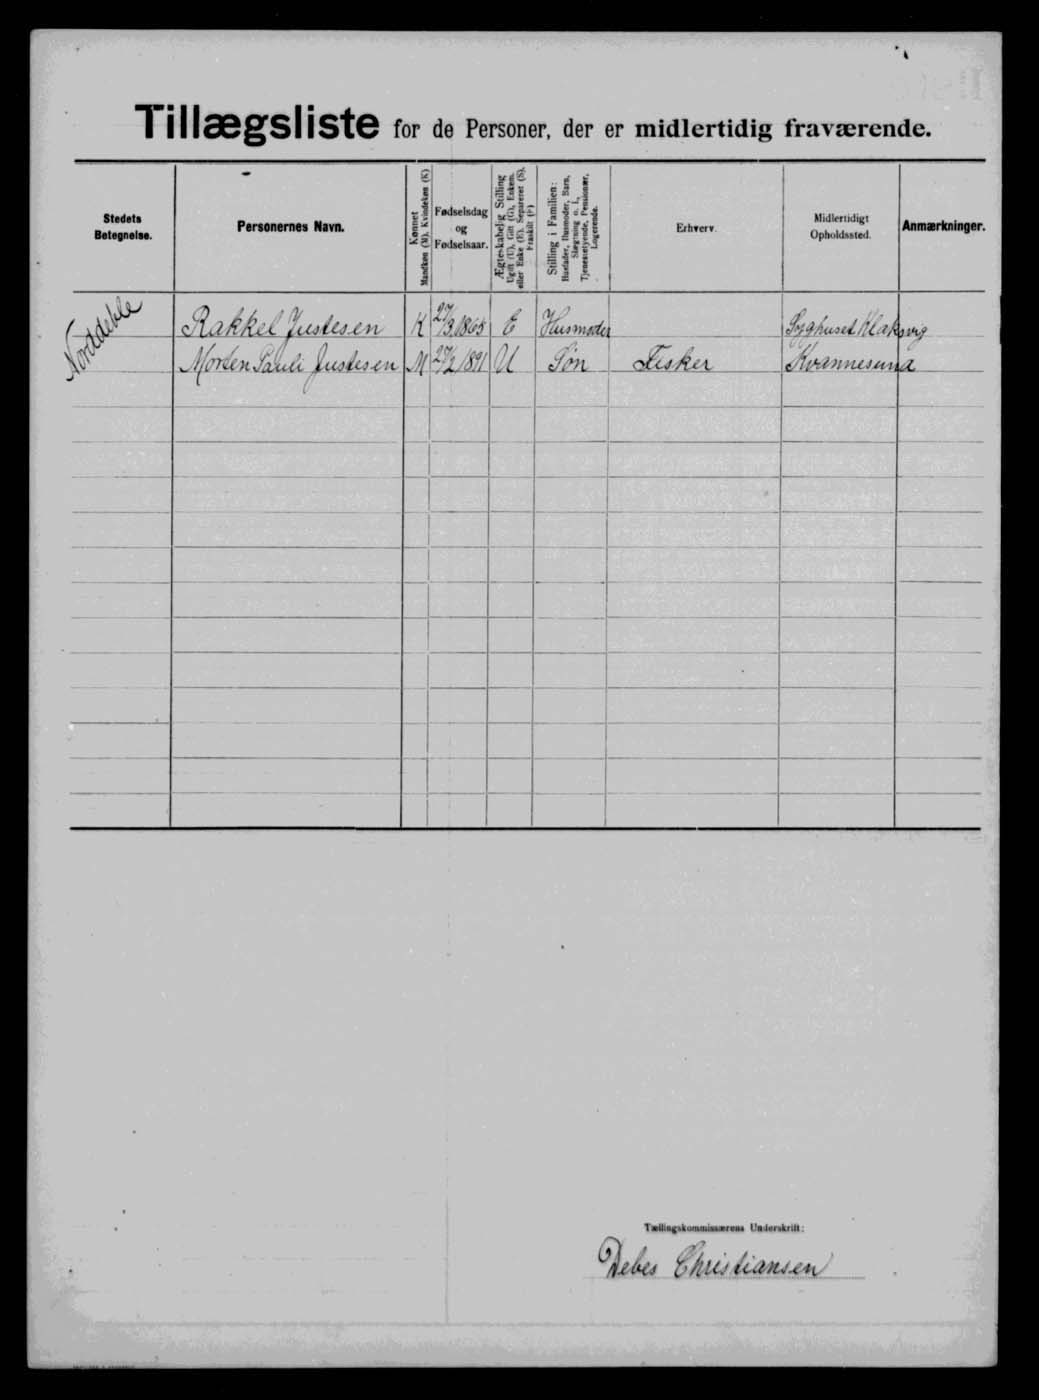 Tillægsliste for de Personer, der er midlertidig fraværende.
Stedets Betegnelse.
Personernes Navn.
Kønnet
Mandkøn (M). Kvindekøn (K)
Fødselsdag
og
Fødselsaar.
Ægteskabelig Stilling
Ugift (U), Gift (G), Enkem.
eller Enke (E), Separeret (S),
Fraskilt (F)
Stilling i Familien:
Husfader, Husmoder, Barn,
Slægtning o. l.,
Tjenestetyende, Pensionær,
Logerende.
Erhverv.
Midlertidigt
Opholdssted.
Anmærkninger.
Norddeble
Rakkel Justesen K 27/3 1865 E Husmoder Syghuset Klaksvig
Morten Pauli Justesen M 27/2 1891 U Søn Fisker Kvannesund
Tællingskommissærens Underskrift:
Debes Christiansen